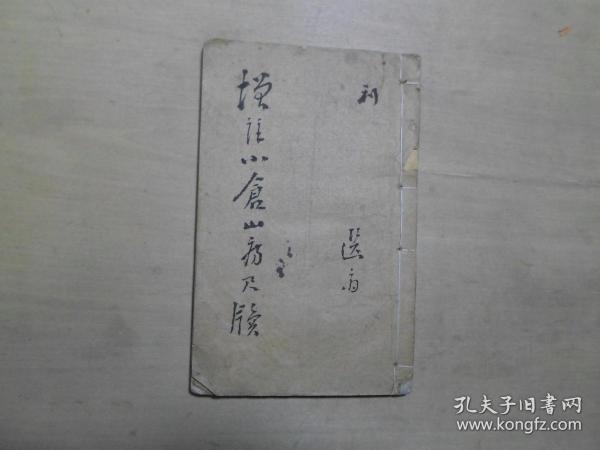 利
選
增註小倉山房尺牘
孔夫子旧書网
www.kongfz.com